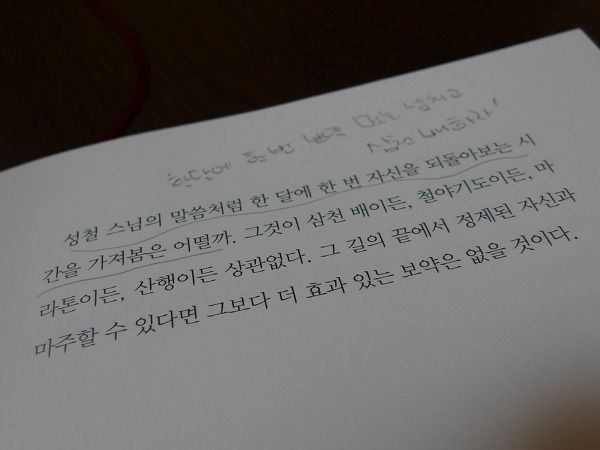 한달에 한번 보약 먹는 셈치고
삼천배하라!
성철 스님의 말씀처럼 한 달에 한 번 자신을 되돌아보는 시
간을 가져봄은 어떨까. 그것이 삼천 배이든, 철야기도이든, 마
라톤이든, 산행이든 상관없다. 그 길의 끝에서 정제된 자신과
마주할 수 있다면 그보다 더 효과 있는 보약은 없을 것이다.